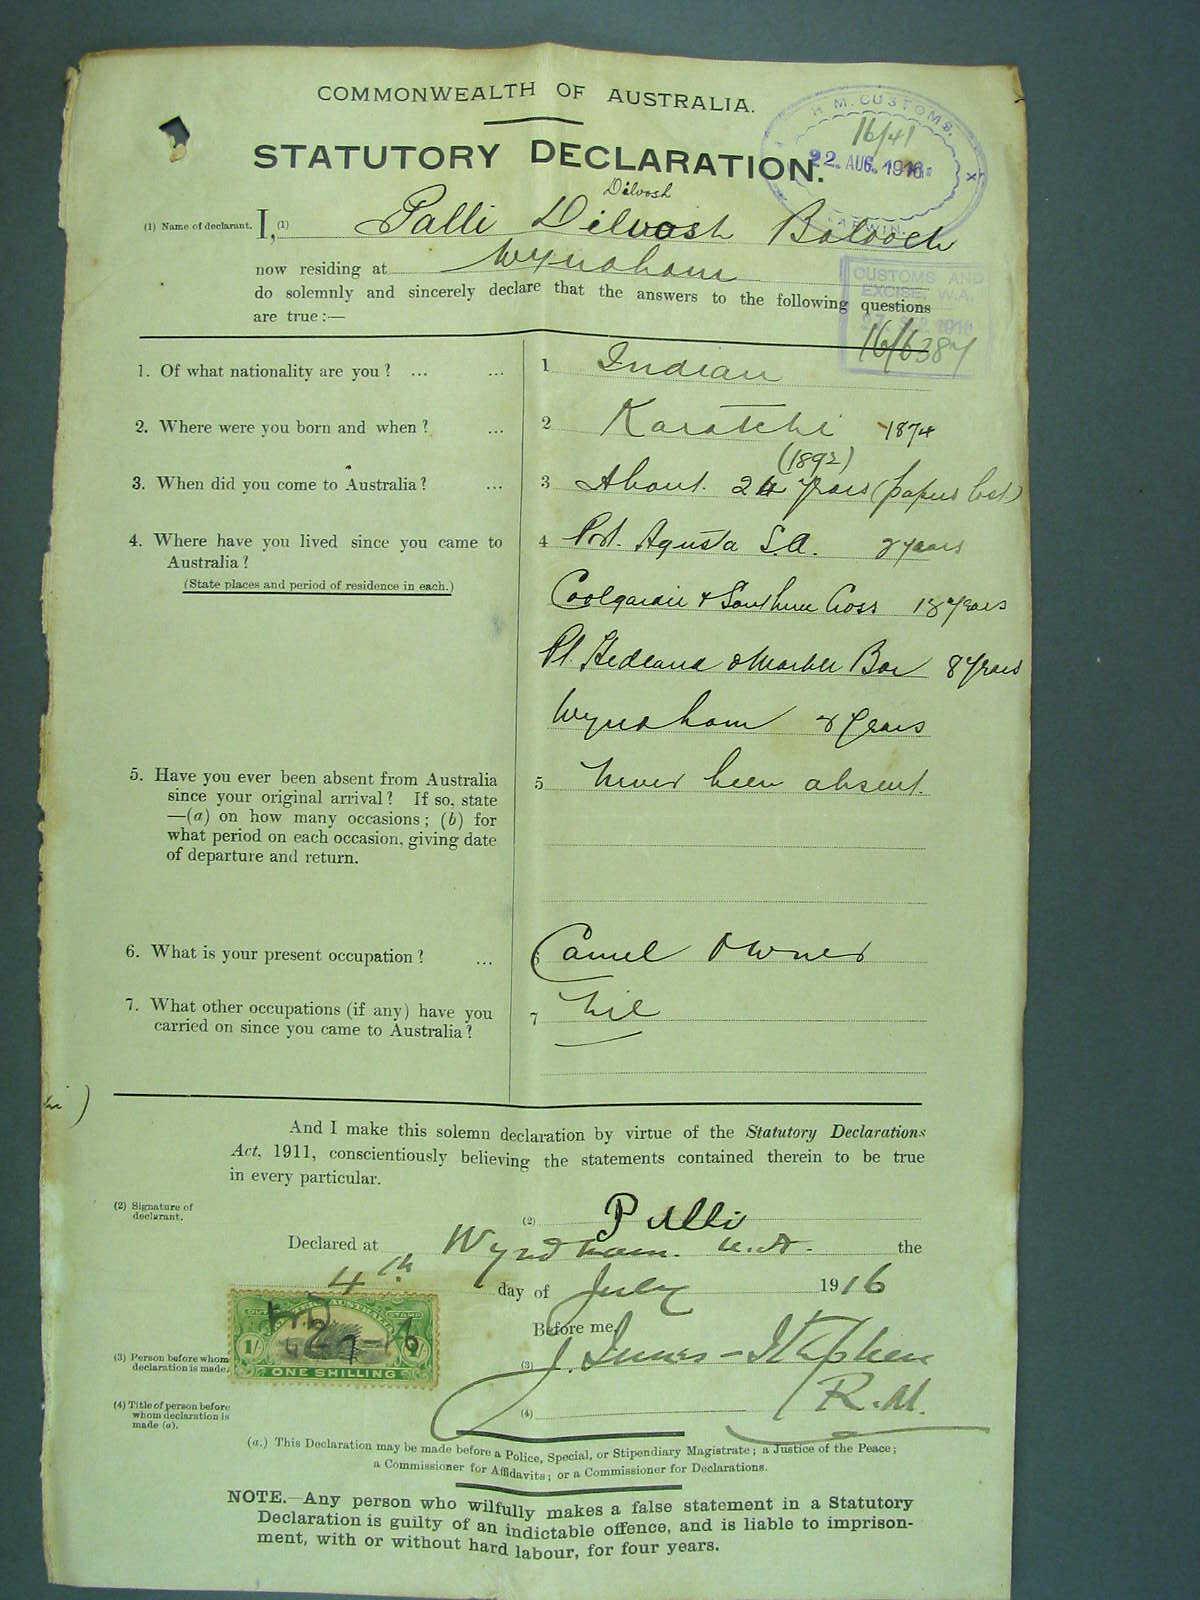 COMMONWEALTH OF AUSTRALIA.
STATUTORY DECLARATION.
H. M. CUSTOMS.
16/41
22. AUG. 1916
Dilvosh
(1) Name of declarant. I, (1) Palli Dilvosh Balooch
now residing at Wyndham
do solemnly and sincerely declare that the answers to the following questions
are true:—
CUSTOMS AND
EXCISE, W.A.
16/6387
1. Of what nationality are you? ... ... 1 Indian
2. Where were you born and when? ... 2 Karatchi 1874
(1892)
3. When did you come to Australia? ... 3 About 24 years (papers lost)
4. Where have you lived since you came to 4 Port Agusta S.A. 2 years
Australia?
(State places and period of residence in each.)
Coolgardie & Southern Cross years
Pt. Hedland & Marble Bar 8 years
Wyndham years
5. Have you ever been absent from Australia 5 Never been absent.
since your original arrival? If so, state
—(a) on how many occasions; (b) for
what period on each occasion, giving date
of departure and return.
6. What is your present occupation? ... 6 Camel Owner
7. What other occupations (if any) have you 7 Nil
carried on since you came to Australia?
And I make this solemn declaration by virtue of the Statutory Declarations
Act, 1911, conscientiously believing the statements contained therein to be true
in every particular.
(2) Signature of
declarant.
(2) Palli
Declared at Wyndham. W.A. the
4th day of July 1916
Before me,
ONE SHILLING
1/-
(3) Person before whom
declaration is made.
(3) J. Innes-Stephen
(4) Title of person before
whom declaration is
made (a).
(4) R.M.
(a.) This Declaration may be made before a Police, Special, or Stipendiary Magistrate; a Justice of the Peace;
a Commissioner for Affidavits; or a Commissioner for Declarations.
NOTE.—Any person who wilfully makes a false statement in a Statutory
Declaration is guilty of an indictable offence, and is liable to imprison-
ment, with or without hard labour, for four years.